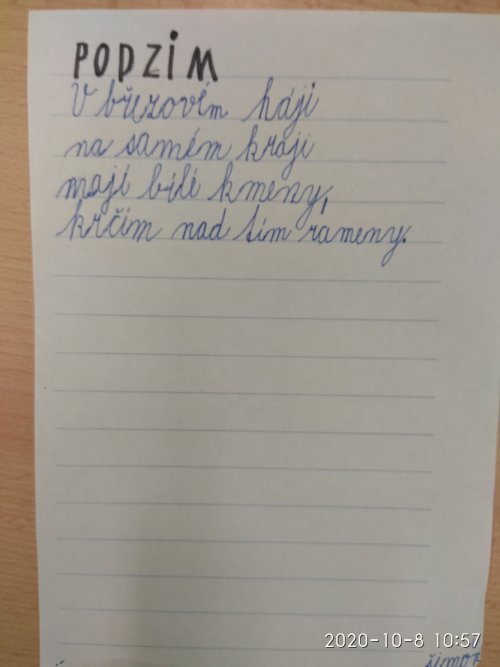 PODZIM
V březovém háji
na samém kraji
mají bílé kmeny,
krčím nad tím rameny.
2020-10-8 10:57